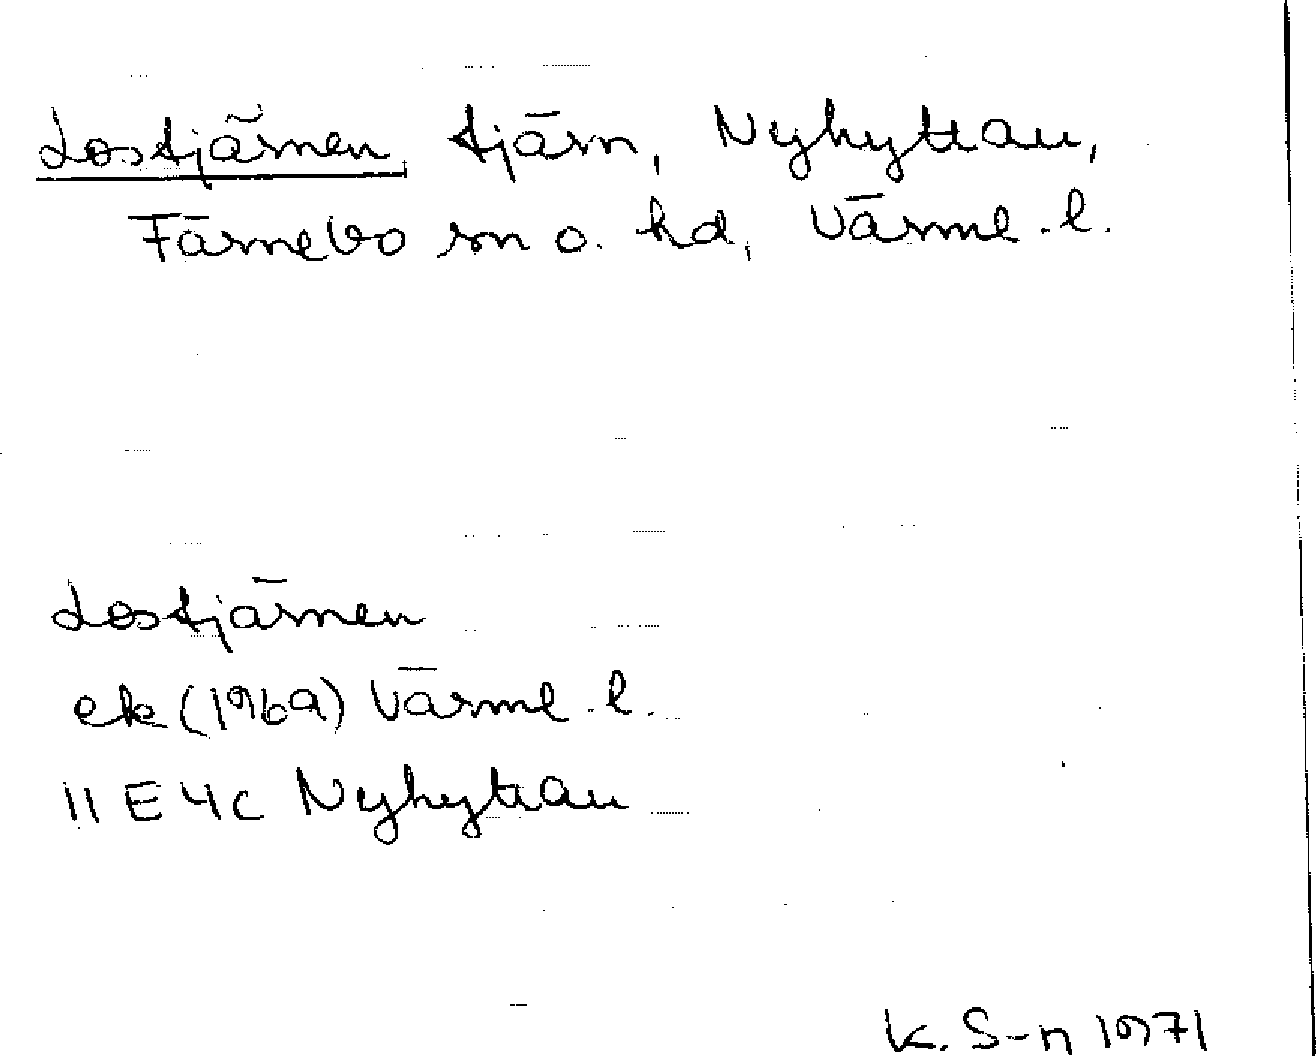 Lostjärnen, tjärn, Nyhyttan,
Färnebo sn o. hd, Värml. l.
Lostjärnen
ek (1969) Värml. l.
11 E 4 c Nyhyttan
K. S-n 1971